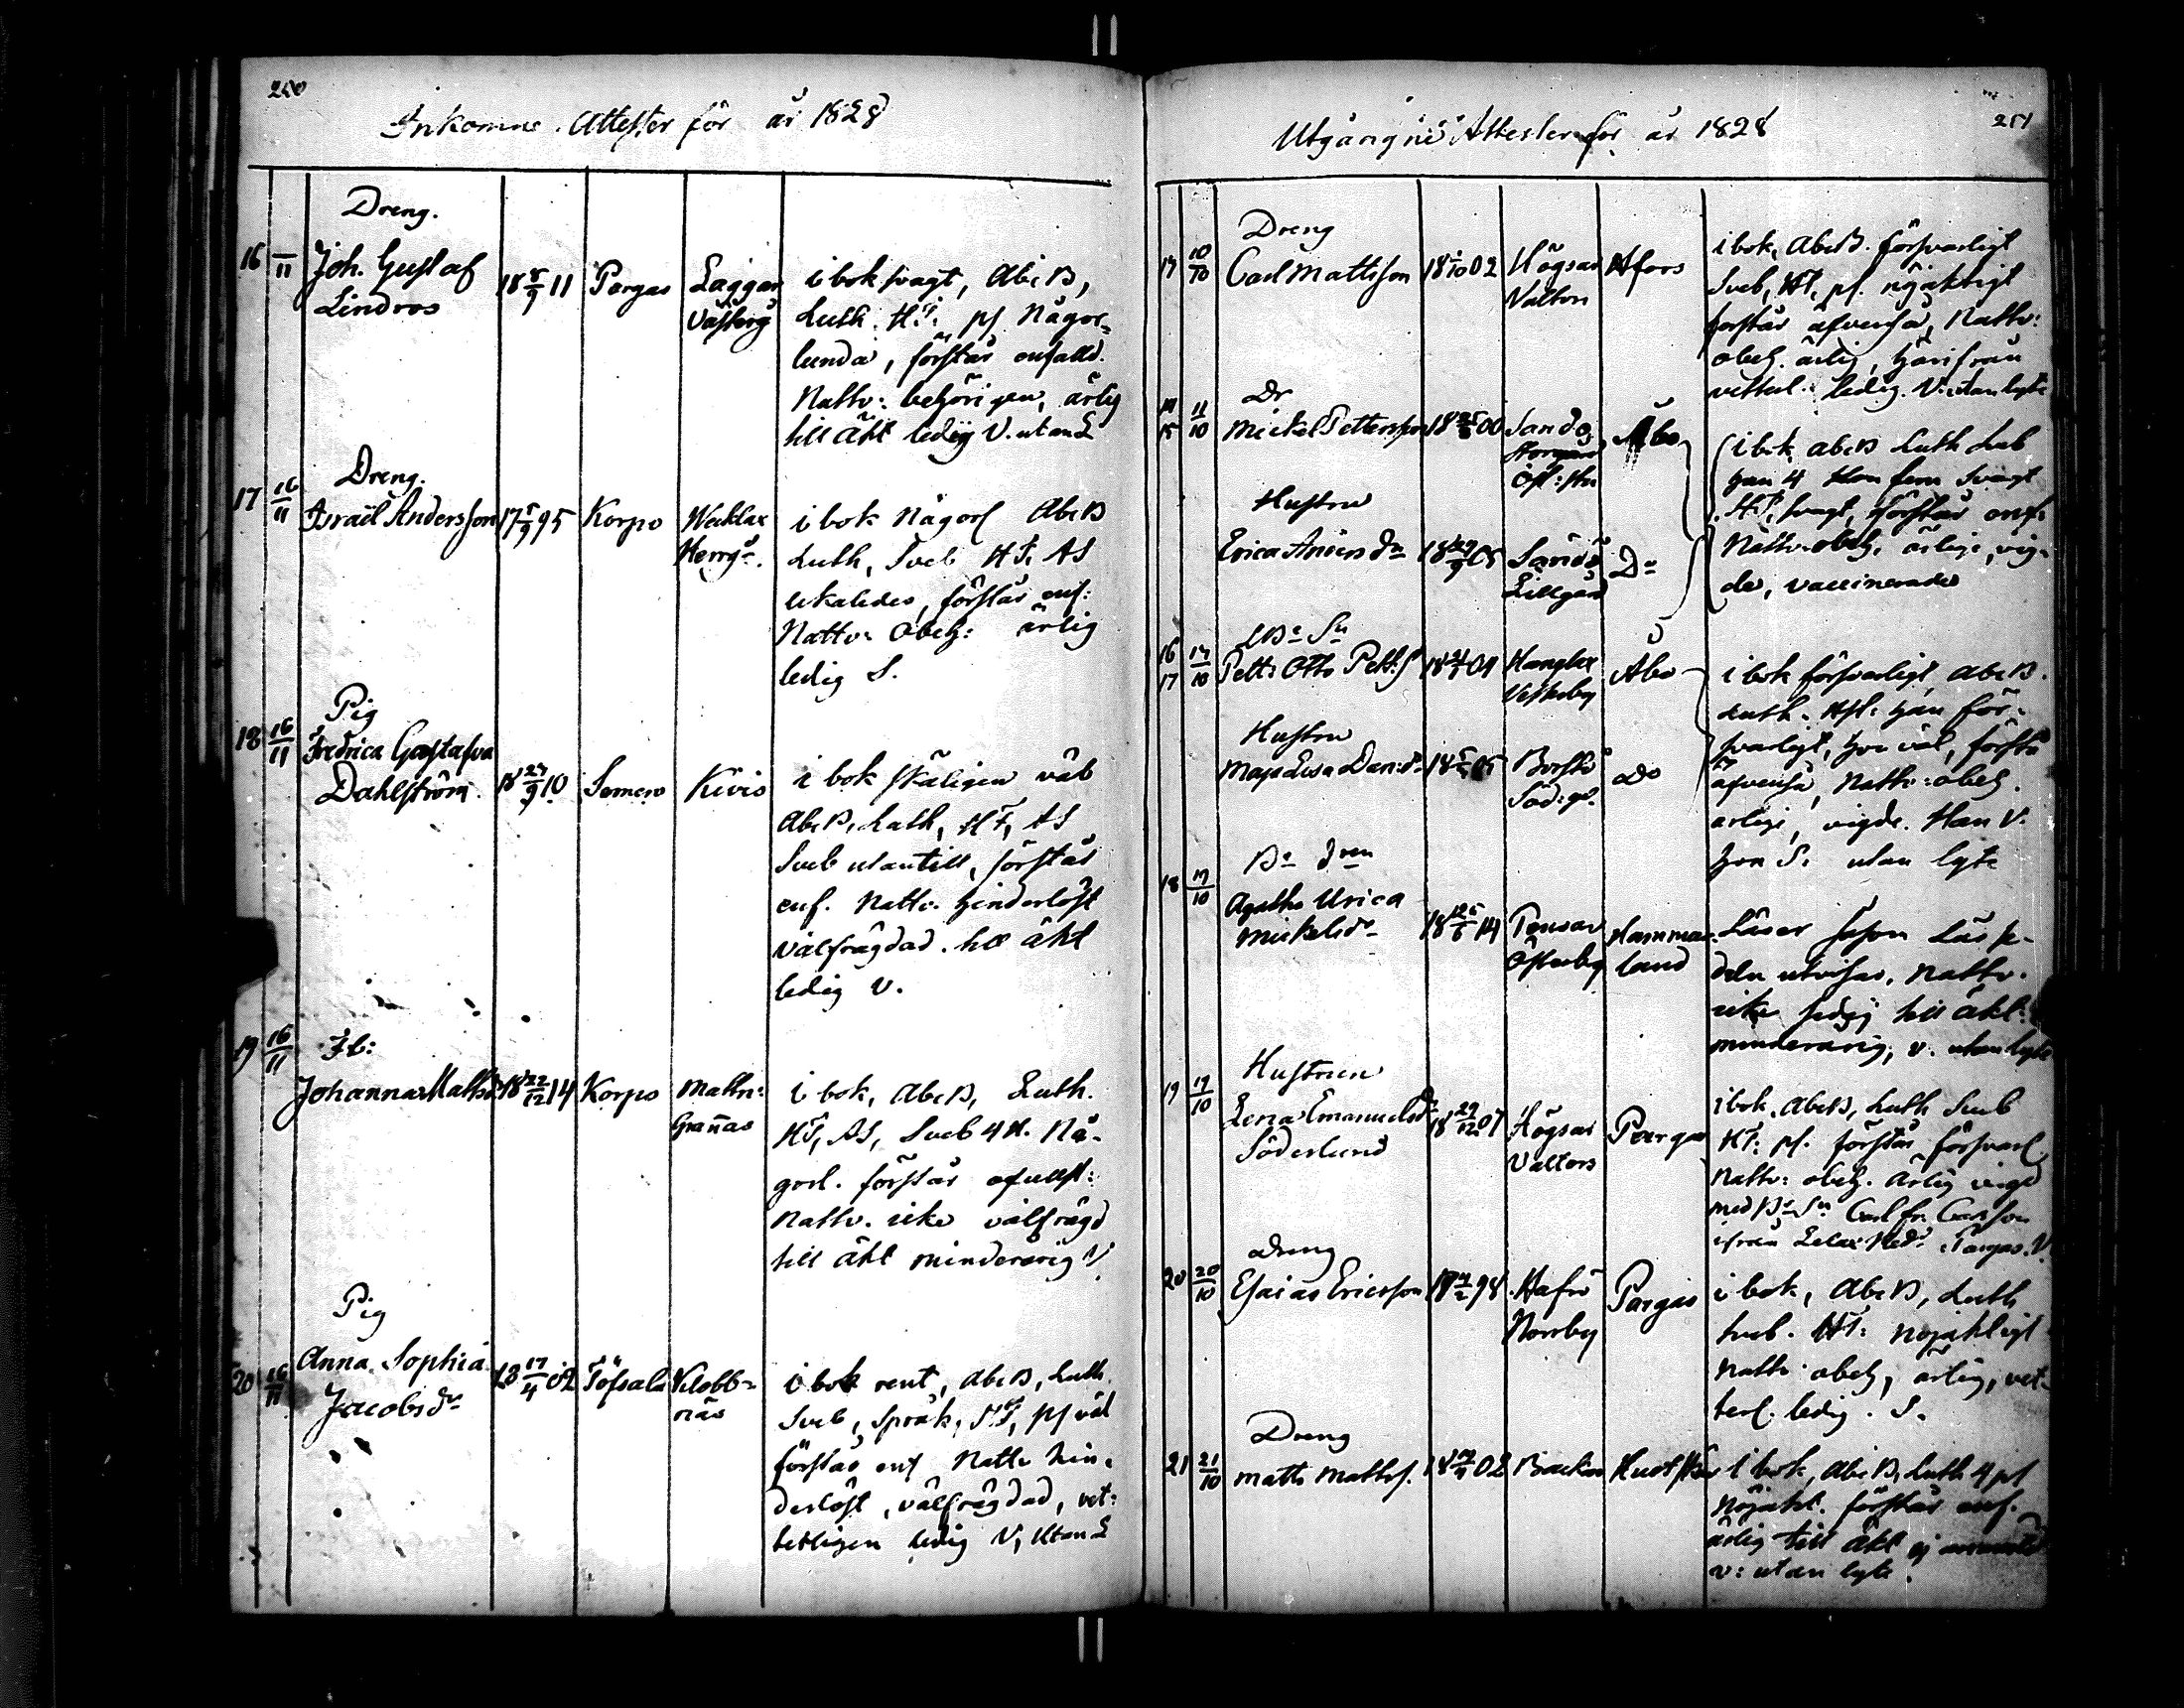 250
Inkomne Attester för år 1828
Dreng.
16 11 Joh. Gustaf
Lindros
18 8/9 11 Pargas Laggar
Västerg
i bok svagt, Abc B,
Luth. H.T. ps Någor-
lunda, förstår enfalld.
Nattv: behörigen, ärlig
till Äkt ledig V. utan L
Dreng.
17 16/11 Israël Andersson 17 95 Korpo Wecklax
Herrg.
i bok Någorl Abc B
Luth, Sveb HT, AS
likaledes, förstår enf:
Nattv: obeh: ärlig
ledig S.
Pig
18 16/11 Fredrica Gustafva
Dahlström. 18 27/9 10 Somero Kivis
i bok skäligen väl
Abc B, Luth, HT, AS
Sveb utantill, förstår
enf. Nattv. hinderlöst
välfrägdad. till äkt
ledig V.
19 16/11 Fl:
Johanna Mathsd 18 22/12 14 Korpo
Grannas
i bok, Abc B, Luth.
HT, AS, Sveb 4 H. Nå-
gorl. förstår ofullst:
Nattv. icke välfrägd
till äkt minderårig V
Pig
20 16/11 Anna Sophia
Jacobsdr 18 17/4 02 Töfsala Klobb-
näs
i bok rent, Abc B, Luth.
Sveb, Språk, HT, ps väl
förstår enf Nattv hin-
derlöst, välfrägdad, vet-
terligen ledig V, utan L
251
Utgångne Attester för år 1828
Dreng
10/10 Carl Mattsson 18 02 Högsar
Valtors
i bok, Abc B. försvarligt
Sveb, HT, ps. nöjaktigt
förstår äfvenså, Nattv:
obeh. ärlig, härifrån
vetterl. ledig. V: utan lyte
Dr
14 15 11/10 Mickel Pettersson 18 00 Sandö
Öst:
Åbo
i bok abc B Luth Sveb
han 4 Hon fem Svagt
HT, svagt, förstår enf:
Nattv: obeh, ärlige, vig-
de, vaccinerade
Hustru
Erica Andersdr 18 05 Sandö
Lillgård
Do
Bo Sn
16 17 17/10 Pett: Otto Pett:s 18 04
Åbo
i bok försvarligt Abc B.
Luth. HT: han för-
svarligt, hon väl, förstå
äfvenså, Nattv: obeh.
ärlige, vigde. Han V.
hon S. utan lyte
Hustru
Maja Lisa Dan:dr 18 05
do
Be Dren
18 17/10 Agatha Ulrica
Mickelsdr 18 14 Pensar
Österby
Hammar-
land
Läser såsom Läse-
deln utvisar, Nattv.
icke ledig till äkt:
minderårig, v. utan lyte
Hustrun
19 19/10 Lena Emanuelsdr
Söderlund 18 29/12 07 Högsar
Valtors
Pargas
i bok, Abc B, Luth Sveb
HT: ps. förstår försvarl
Nattv: obeh. ärlig vigd
med Be Sn Carl fr. Carlsson
ifrån Pargas. V
Dreng
20 20/10 Esaias Ericsson 98 Hafrö
Norrby
Pargas
i bok, Abc B, Luth
Sveb. HT: nöjaktligt
Nattv: obeh, ärlig, vet-
terl. ledig. S.
Dreng
21 21/10 Matts Mattss. 18 02
i bok, Abc B, Luth 4 ps
nöjakt. förstår enf.
ärlig till äkt ej
v: utan lyte.